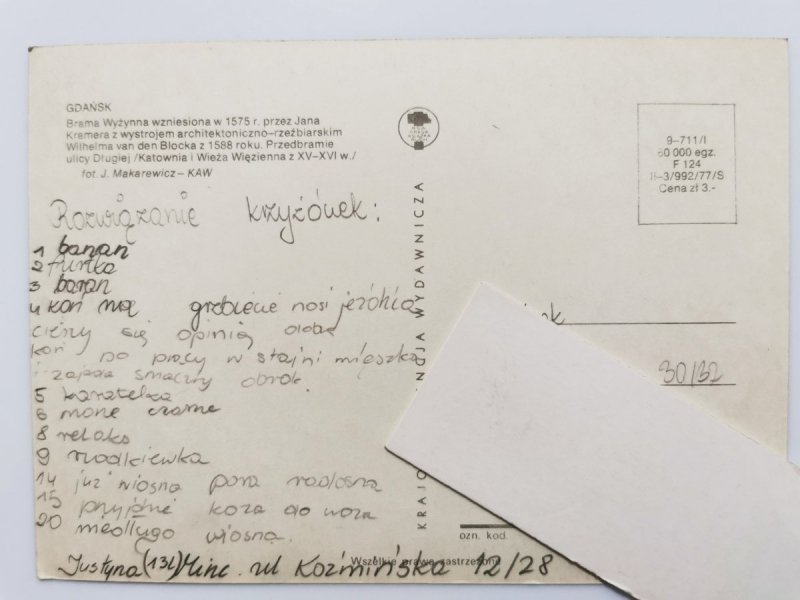 GDAŃSK
Brama Wyżynna wzniesiona w 1575 r. przez Jana
Kramera z wystrojem architektoniczno-rzeźbiarskim
Wilhelma van den Blocka z 1588 roku. Przedbramie
ulicy Długiej /Katownia i Wieża Więzienna z XV-XVI w./
fot. J. Makarewicz - KAW
9-711/I
60 000 egz.
F 124
3/992/77/S
Cena zł 3.-
WYDAWNICZA
Rozwiązanie krzyżówek:
1 banan
2 furtka
3 baran
4 koń na grzbiecie nosi jeźdźca
cieszy się opinią
koń po pracy w stajni mieszka
i zajada smaczny obrok.
5 karatelka
6 czarne
8 relaks
9 rzodkiewka
14 już wiosna pora radosna
15 przyjdzie koza do woza
20 niedługo wiosna.
30/32
ozn. kod.
Wszelkie prawa zastrzeżone
Justyna (13l) Minc. ul Koźmińska 12/28